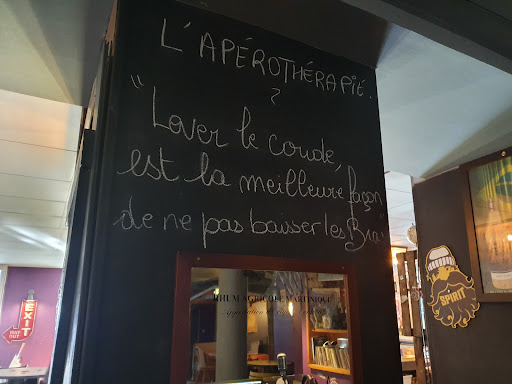 L'APÉROTHÉRAPIE.
?
"Lever le coude,
est la meilleure façon
de ne pas baisser les Bras"
RHUM AGRICOLE MARTINIQUE
EXIT
SPIRIT